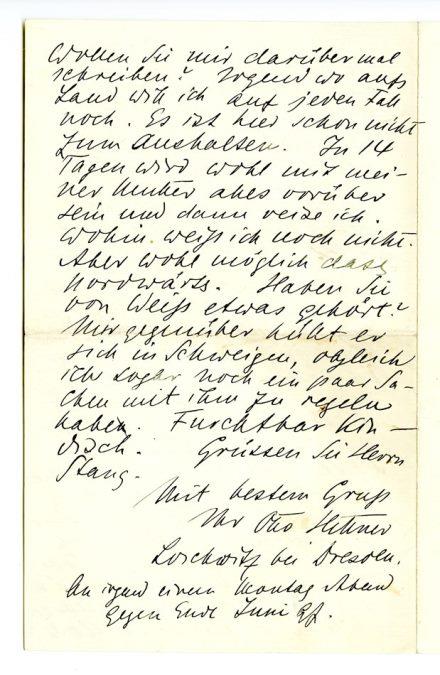 Wollen Sie mir darüber mal
schreiben? Irgendwo aufs
Land will ich auf jeden Fall
noch. Es ist hier schon nicht
zum Aushalten. In 14
Tagen wird wohl mit mei-
ner Mutter alles vorüber
sein und dann reise ich.
Wohin weiß ich noch nicht.
Aber wohl möglich dass
nordwärts. Haben Sie
von Weiß etwas gehört?
Mir gegenüber hüllt er
sich in Schweigen, obgleich
ich sogar noch ein paar Sa-
chen mit ihm zu regeln
haben. Furchtbar kin-
disch. Grüssen Sie Herrn
Stang.
Mit bestem Gruß
Ihr Otto Hettner
Loschwitz bei Dresden.
An irgend einem Montag Abend
gegen Ende Juni